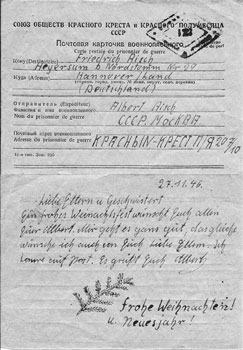 СОЮЗ ОБЩЕСТВ КРАСНОГО КРЕСТА и КРАСНОГО ПОЛУМЕСЯЦА
СССР
Почтовая карточка военнопленного
Carte postale du prisonnier de guerre
Кому (Destinataire) Friedrich
Heyersum b. Nordstemm Nr
Куда (Adresse) Hannover/Land
(Deutschland)
Отправитель (Expéditeur) Albert
Фамилия и имя военнопленного
Nom du prisonnier de guerre СССР. Москва
Почтовый адрес военнопленного
Adresse du prisonnier de guerre КРАСНЫЙ-КРЕСТ П/Я
27.11.46.
Liebe Eltern u. Geschwister!
Ein frohes Weihnachtsfest wünscht Euch allen
Euer Albert. Mir geht es ganz gut, dasgleiche
wünsche ich auch von Euch Liebe Eltern. Ich
auf Post. Es grüßt Euch Albert.
Frohe Weihnachten!
u. Neuesjahr!